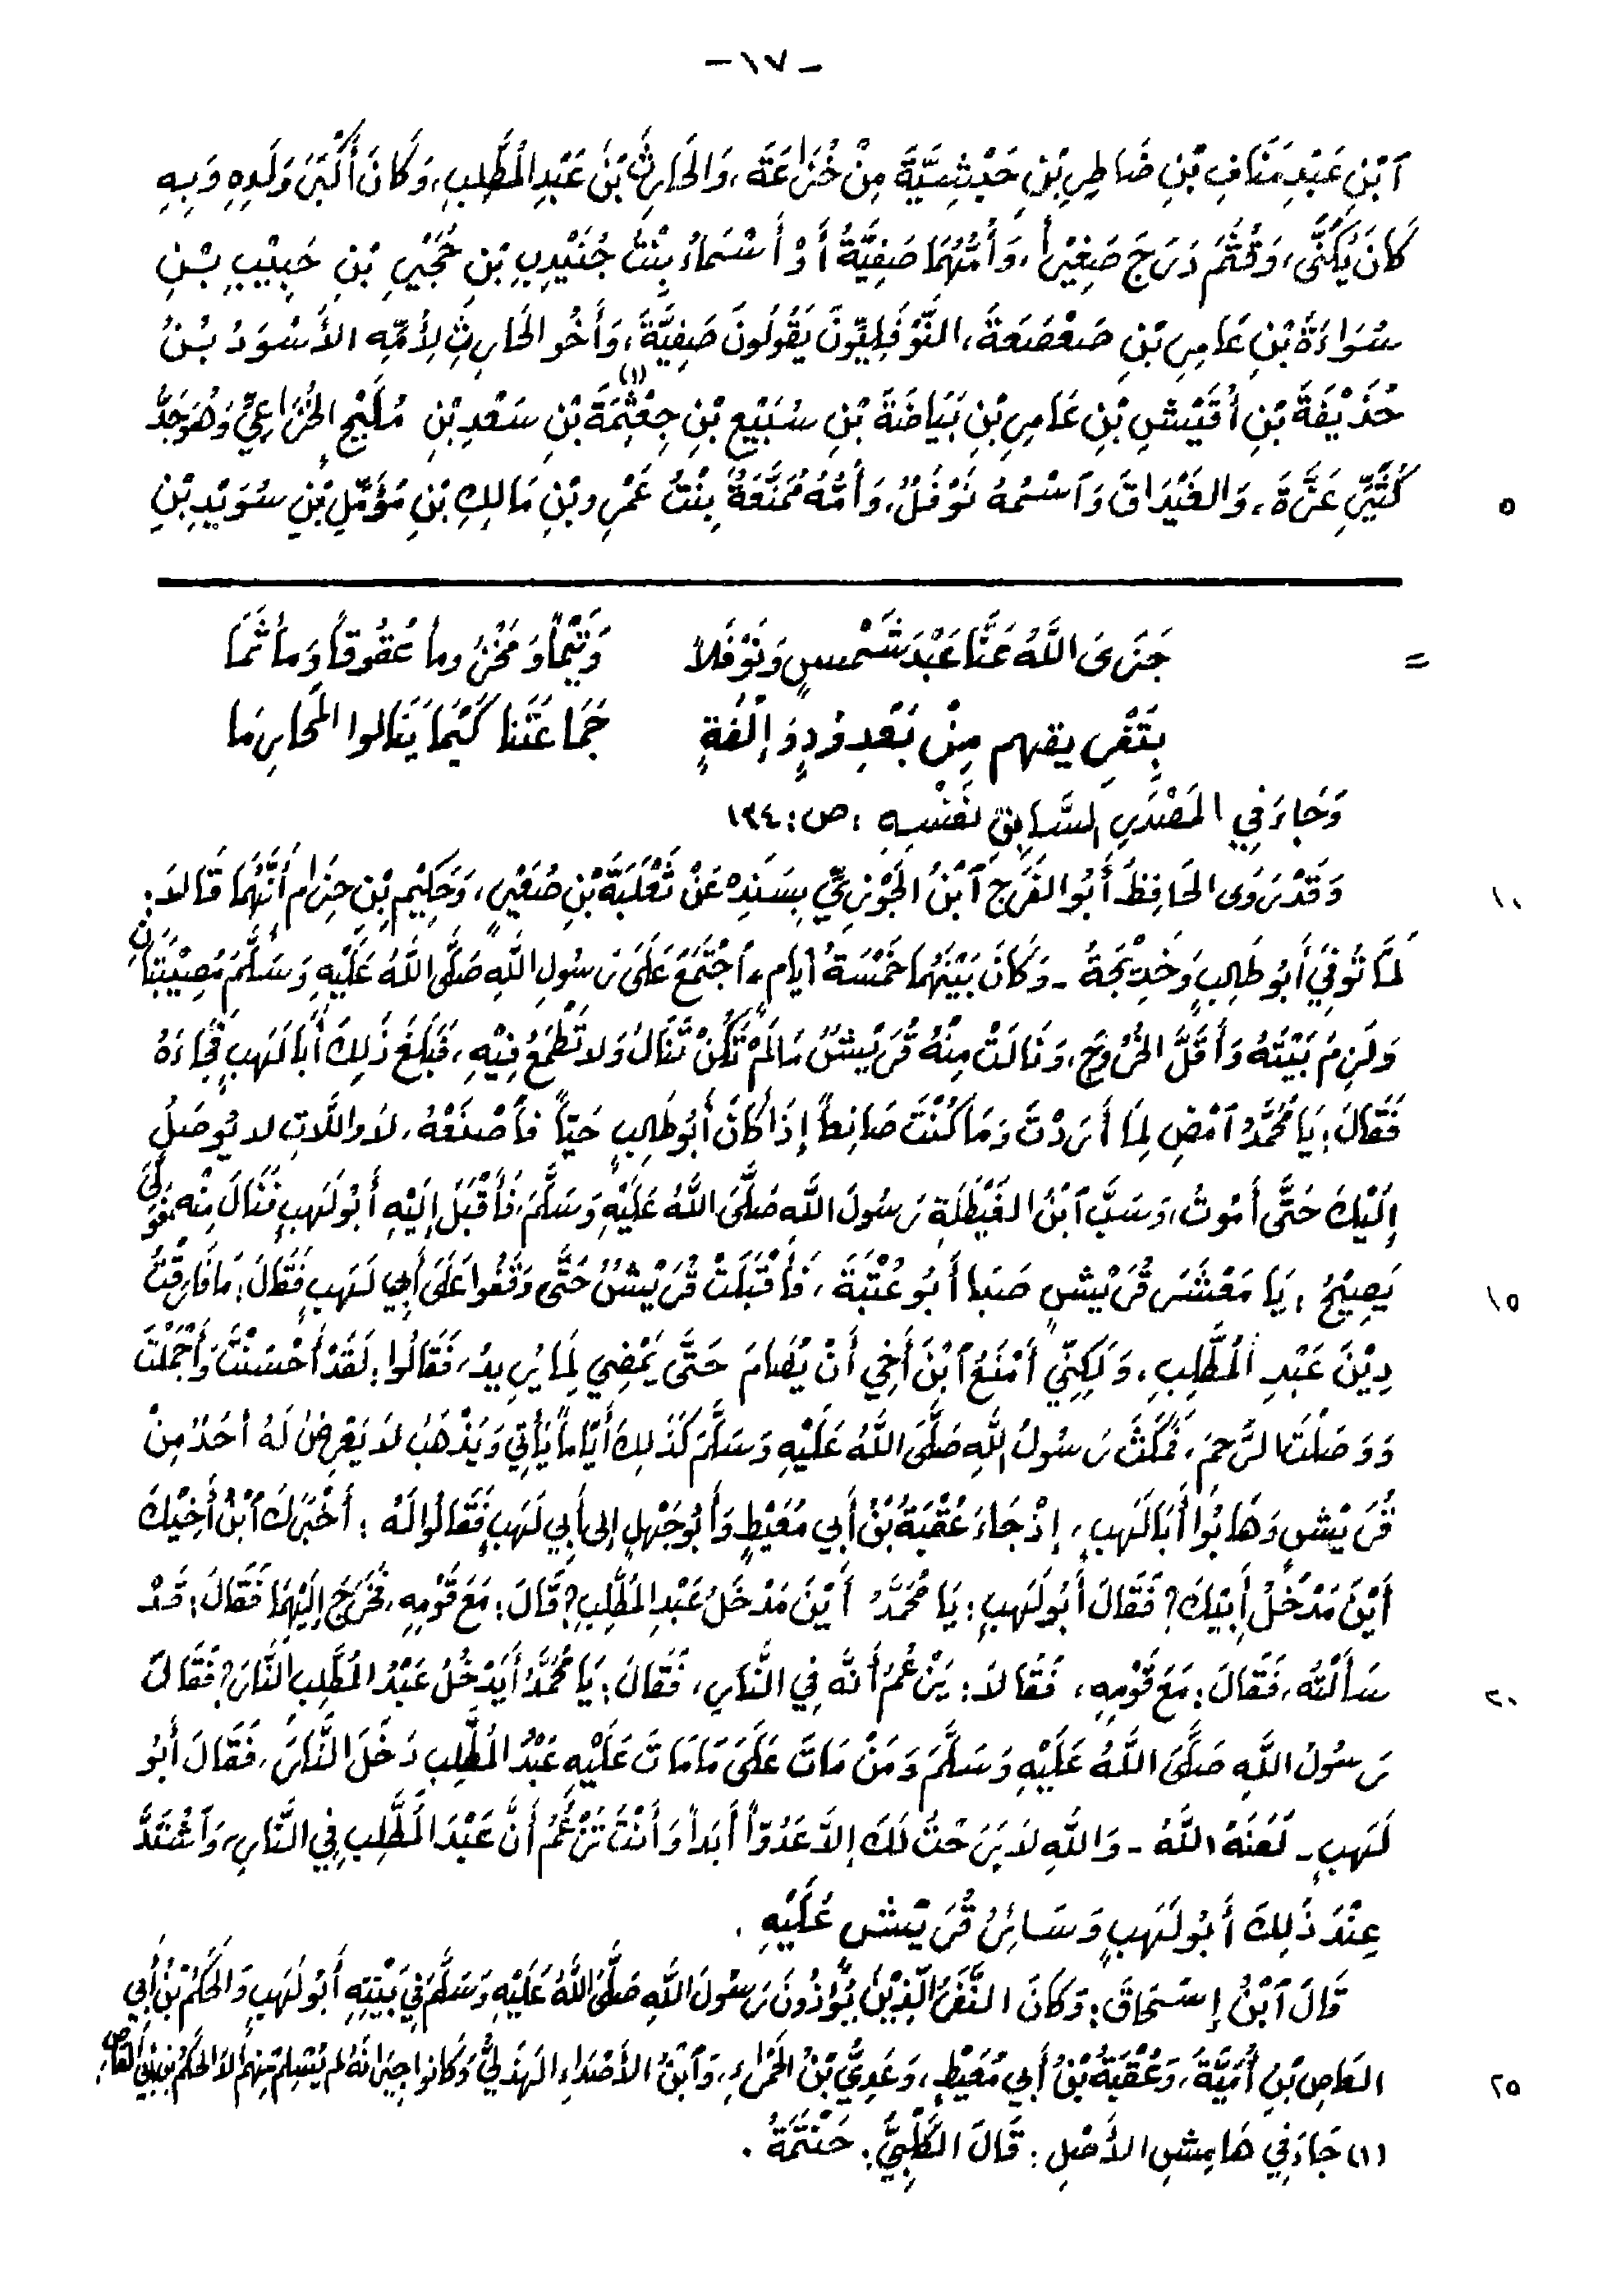 -١٧-
ٱبْنِ عَبْدِ مَنَافِ بْنِ ضَاطِرِ بْنِ حَبْشِيَّةَ مِنْ خُزَاعَةَ، وَالحَارِثُ بْنُ عَبْدِ المُطَّلِبِ، وَكَانَ أَكْبَرَ وَلَدِهِ وَبِهِ
كَانَ يُكَنَّى، وَقُثَمَ دَرَجَ صَغِيْراً، وَأُمُّهُمَا صَفِيَّةُ أَوْ أَسْمَاءُ بِنْتُ جُنَيْدِبِ بْنِ حُجَيْرِ بْنِ حَبِيْبِ بْنِ
سُوَاءَةَ بْنِ عَامِرِ بْنِ صَعْصَعَةَ، النَّوْفَلِيُّونَ يَقُولُونَ صَفِيَّةَ، وَأَخُو الحَارِثِ لِأُمِّهِ الأَسْوَدُ بْنُ
حُذَيْفَةَ بْنِ أُقَيْشِ بْنِ عَامِرِ بْنِ بَيَاضَةَ بْنِ سُبَيْعِ بْنِ جِعْثِمَةَ (١) بْنِ سَعْدِ بْنِ مُلَيْحٍ الخُزَاعِيِّ وَهُوَ جَدُّ
كُثَيِّرِ عَزَّةَ، وَالغَيْدَاقَ وَٱسْمُهُ نَوْفَلُ، وَأُمُّهُ مُمَنَّعَةُ بِنْتُ عَمْرِو بْنِ مَالِكِ بْنِ مُؤَمِّلِ بْنِ سُوَيْدِ بْنِ
٥
= جَزَى اللَّهُ عَنَّا عَبْدَ شَمْسٍ وَنَوْفَلاً وَتَيْماً وَمَخْزُوماً عُقُوقاً وَمَأْثَمَا
بِتَفْرِيقِهِم مِنْ بَعْدِ وُدٍّ وَإِلْفَةٍ جَمَاعَتَنَا كَيْمَا يَنَالوا المَحَارِمَا
وَجَاءَ فِي المَصْدَرِ السَّابِقِ نَفْسِهِ، ص: ١٣٤
وَقَدْ رَوَى الحَافِظُ أَبُو الفَرَجِ ٱبْنُ الجَوْزِيِّ بِسَنَدِهْ عَنْ ثَعْلَبَةَ بْنِ صُعَيْرٍ، وَحَكِيْمِ بْنِ حِزَامٍ أَنَّهُمَا قَالاَ:
١٠
لَمَّا تُوفِيَ أَبُو طَالِبٍ وَخَدِيْجَةُ - وَكَانَ بَيْنَهُمَا خَمْسَةُ أَيامٍ - ٱجْتَمَعَ عَلَى رَسُولِ اللَّهِ صَلَّى اللَّهُ عَلَيْهِ وَسَلَّمَ مُصِيْبَتَانِ
وَلَزِمَ بَيْتَهُ وَأَقَلَّ الخُرُوجَ، وَنَالَتْ مِنْهُ قُرَيْشٌ مَالَمْ تَكُنْ تَنَالُ وَلاَ تَطْمَعُ فِيْهِ، فَبَلَغَ ذَلِكَ أَبَا لَهَبٍ فَجَاءَهُ
فَقَالَ: يَا مُحَمَّدُ ٱمْضِ لِمَا أَرَدْتَ وَمَا كُنْتَ صَانِعاً إِذَا كَانَ أَبُو طَالِبٍ حَيّاً فَٱصْنَعْهُ، لاَ وَاللَّاتِ لا يُوصَلُ
إِلَيْكَ حَتَّى أَمُوتُ، وَسَبَّ ٱبْنُ الغَيْطَلَةِ رَسُولَ اللَّهِ صَلَّى اللَّهُ عَلَيْهِ وَسَلَّمَ، فَأَقْبَلَ إِلَيْهِ أَبُو لَهَبٍ فَنَالَ مِنْه فَوَلَّى
يَصِيْحُ: يَا مَعْشَرَ قُرَيْشٍ صَبَا أَبُو عُتْبَةَ، فَأَقْبَلَتْ قُرَيْشٌ حَتَّى وَقَفُوا عَلَى أَبِي لَهَبٍ فَقَالَ: مَا فَارَقْتُ
١٥
دِيْنَ عَبْدِ المُطَّلِبِ، وَلَكِنِّي أَمْنَعُ ٱبْنَ أَخِي أَنْ يُضَامَ حَتَّى يَمْضِي لِمَا يُرِيدُ، فَقَالُوا: لَقَدْ أَحْسَنْتَ وَأَجْمَلْتَ
وَوَصَلْتَ الرَّحِمَ، فَمَكَثَ رَسُولُ اللَّهِ صَلَّى اللَّهُ عَلَيْهِ وَسَلَّمَ كَذَلِكَ أَيَّاماً يَأْتِي وَيَذْهَبُ لاَ يَعْرِضُ لَهُ أَحَدٌ مِنْ
قُرَيْشٍ وَهَابُوا أَبَا لَهَبٍ، إِذْ جَاءَ عُقْبَةُ بْنُ أَبِي مُعَيْطٍ وَأَبُو جَهْلٍ إِلى أَبِي لَهَبٍ فَقَالُوا لَهُ: أَخْبَرَكَ ٱبْنُ أَخِيْكَ
أَيْنَ مَدْخَلُ أَبِيْكَ؟ فَقَالَ أَبُو لَهَبٍ: يَا مُحَمَّدُ أَيْنَ مَدْخَلُ عَبْدِ المُطَّلِبِ؟ قَالَ: مَعَ قَوْمِهِ، فَخَرَجَ إِلَيْهِمَا فَقَالَ: قَدْ
سَأَلْتُه، فَقَالَ: مَعَ قَوْمِهِ، فَقَالاَ: يَزْعُمُ أَنَّه فِي النَّارِ، فَقَالَ: يَا مُحَمَّدُ أَيَدْخُلُ عَبْدُ المُطَّلِبِ النَّارَ؟ فَقَالَ
٢٠
رَسُولُ اللَّهِ صَلَّى اللَّهُ عَلَيْهِ وَسَلَّمَ وَمَنْ مَاتَ عَلَى مَا مَاتَ عَلَيْهِ عَبْدُ المُطَّلِبِ دَخَلَ النَّارَ، فَقَالَ أَبُو
لَهَبٍ - لَعَنَهُ اللَّهُ - وَاللَّهِ لاَ بَرِحْتُ لَكَ إِلاَّ عَدُوّاً أَبَداً وَأَنْتَ تَزْعُمُ أَنَّ عَبْدَ المُطَّلِبِ فِي النَّارِ، وَٱشْتَدَّ
عِنْدَ ذَلِكَ أَبُو لَهَبٍ وَسَائِرُ قُرَيْشٍ عَلَيْهِ.
قَالَ ٱبْنُ إِسْحَاقَ: وَكَانَ النَّفَرُ الَّذِيْنَ يُؤذُونَ رَسُولَ اللَّهِ صَلَّى اللَّهُ عَلَيْهِ وَسَلَّمَ فِي بَيْتِهِ أَبُو لَهَبٍ وَالحَكَمُ بْنُ أَبِي
العَاصِ بْنِ أُمَيَّةَ، وَعُقْبَةُ بْنُ أَبِي مُعَيْطٍ، وَعَدِيُّ بْنُ الحَمْرَاءِ، وَٱبْنُ الأَصْدَاءِ الهَذَلِيُّ وَكَانُوا جِيْرَانَهُ لم يُسْلِمْ مِنْهُم إلاَّ الحَكَمُ بنُ أَبِي العَاصِ.
٢٥
(١) جَاءَ فِي هَامِشِ الأَصْلِ: قَالَ الكَلْبِيُّ: حَنْتَمَةُ.